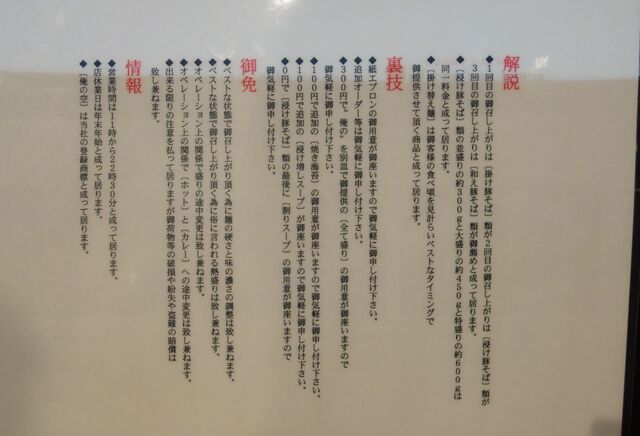 解説
◆１回目の御召し上がりは〔掛け豚そば〕類が２回目の御召し上がりは〔浸け豚そば〕類が
３回目の御召し上がりは〔和え豚そば〕類が御薦めと成って居ります。
◆〔浸け豚そば〕類の並盛りの約３００ｇと大盛りの約４５０ｇと特盛りの約６００ｇは
同一料金と成って居ります。
◆〔掛け替え麺〕は御客様の食べ頃を見計らいベストなタイミングで
御提供させて頂く商品と成って居ります。
裏技
◆紙エプロンの御用意が御座いますので御気軽に御申し付け下さい。
◆追加オーダー等は御気軽に御申し付け下さい。
◆３００円で、俺の〝を別皿で御提供の〔全て盛り〕の御用意が御座いますので
御気軽に御申し付け下さい。
◆１００円で追加の〔焼き海苔〕の御用意が御座いますので御気軽に御申し付け下さい。
◆１００円で追加の〔浸け増しスープ〕が御座いますので御気軽に御申し付け下さい。
◆０円で〔浸け豚そば〕類の最後に〔割りスープ〕の御用意が御座いますので
御気軽に御申し付け下さい。
御免
◆ベストな状態で御召し上がり頂く為に麺の硬さと味の濃さの調整は致し兼ねます。
◆ベストな状態で御召し上がり頂く為に俗に言われる熱盛りは致し兼ねます。
◆オペレーション上の関係で盛りの途中変更は致し兼ねます。
◆オペレーション上の関係で〔ホット〕と〔カレー〕への途中変更は致し兼ねます。
◆出来る限りの注意を払って居りますが御荷物等の破損や紛失や盗難の賠償は
致し兼ねます。
情報
◆営業時間は１１時から２２時３０分と成って居ります。
◆店休業日は年末年始と成って居ります。
◆〔俺の空〕は当社の登録商標と成って居ります。